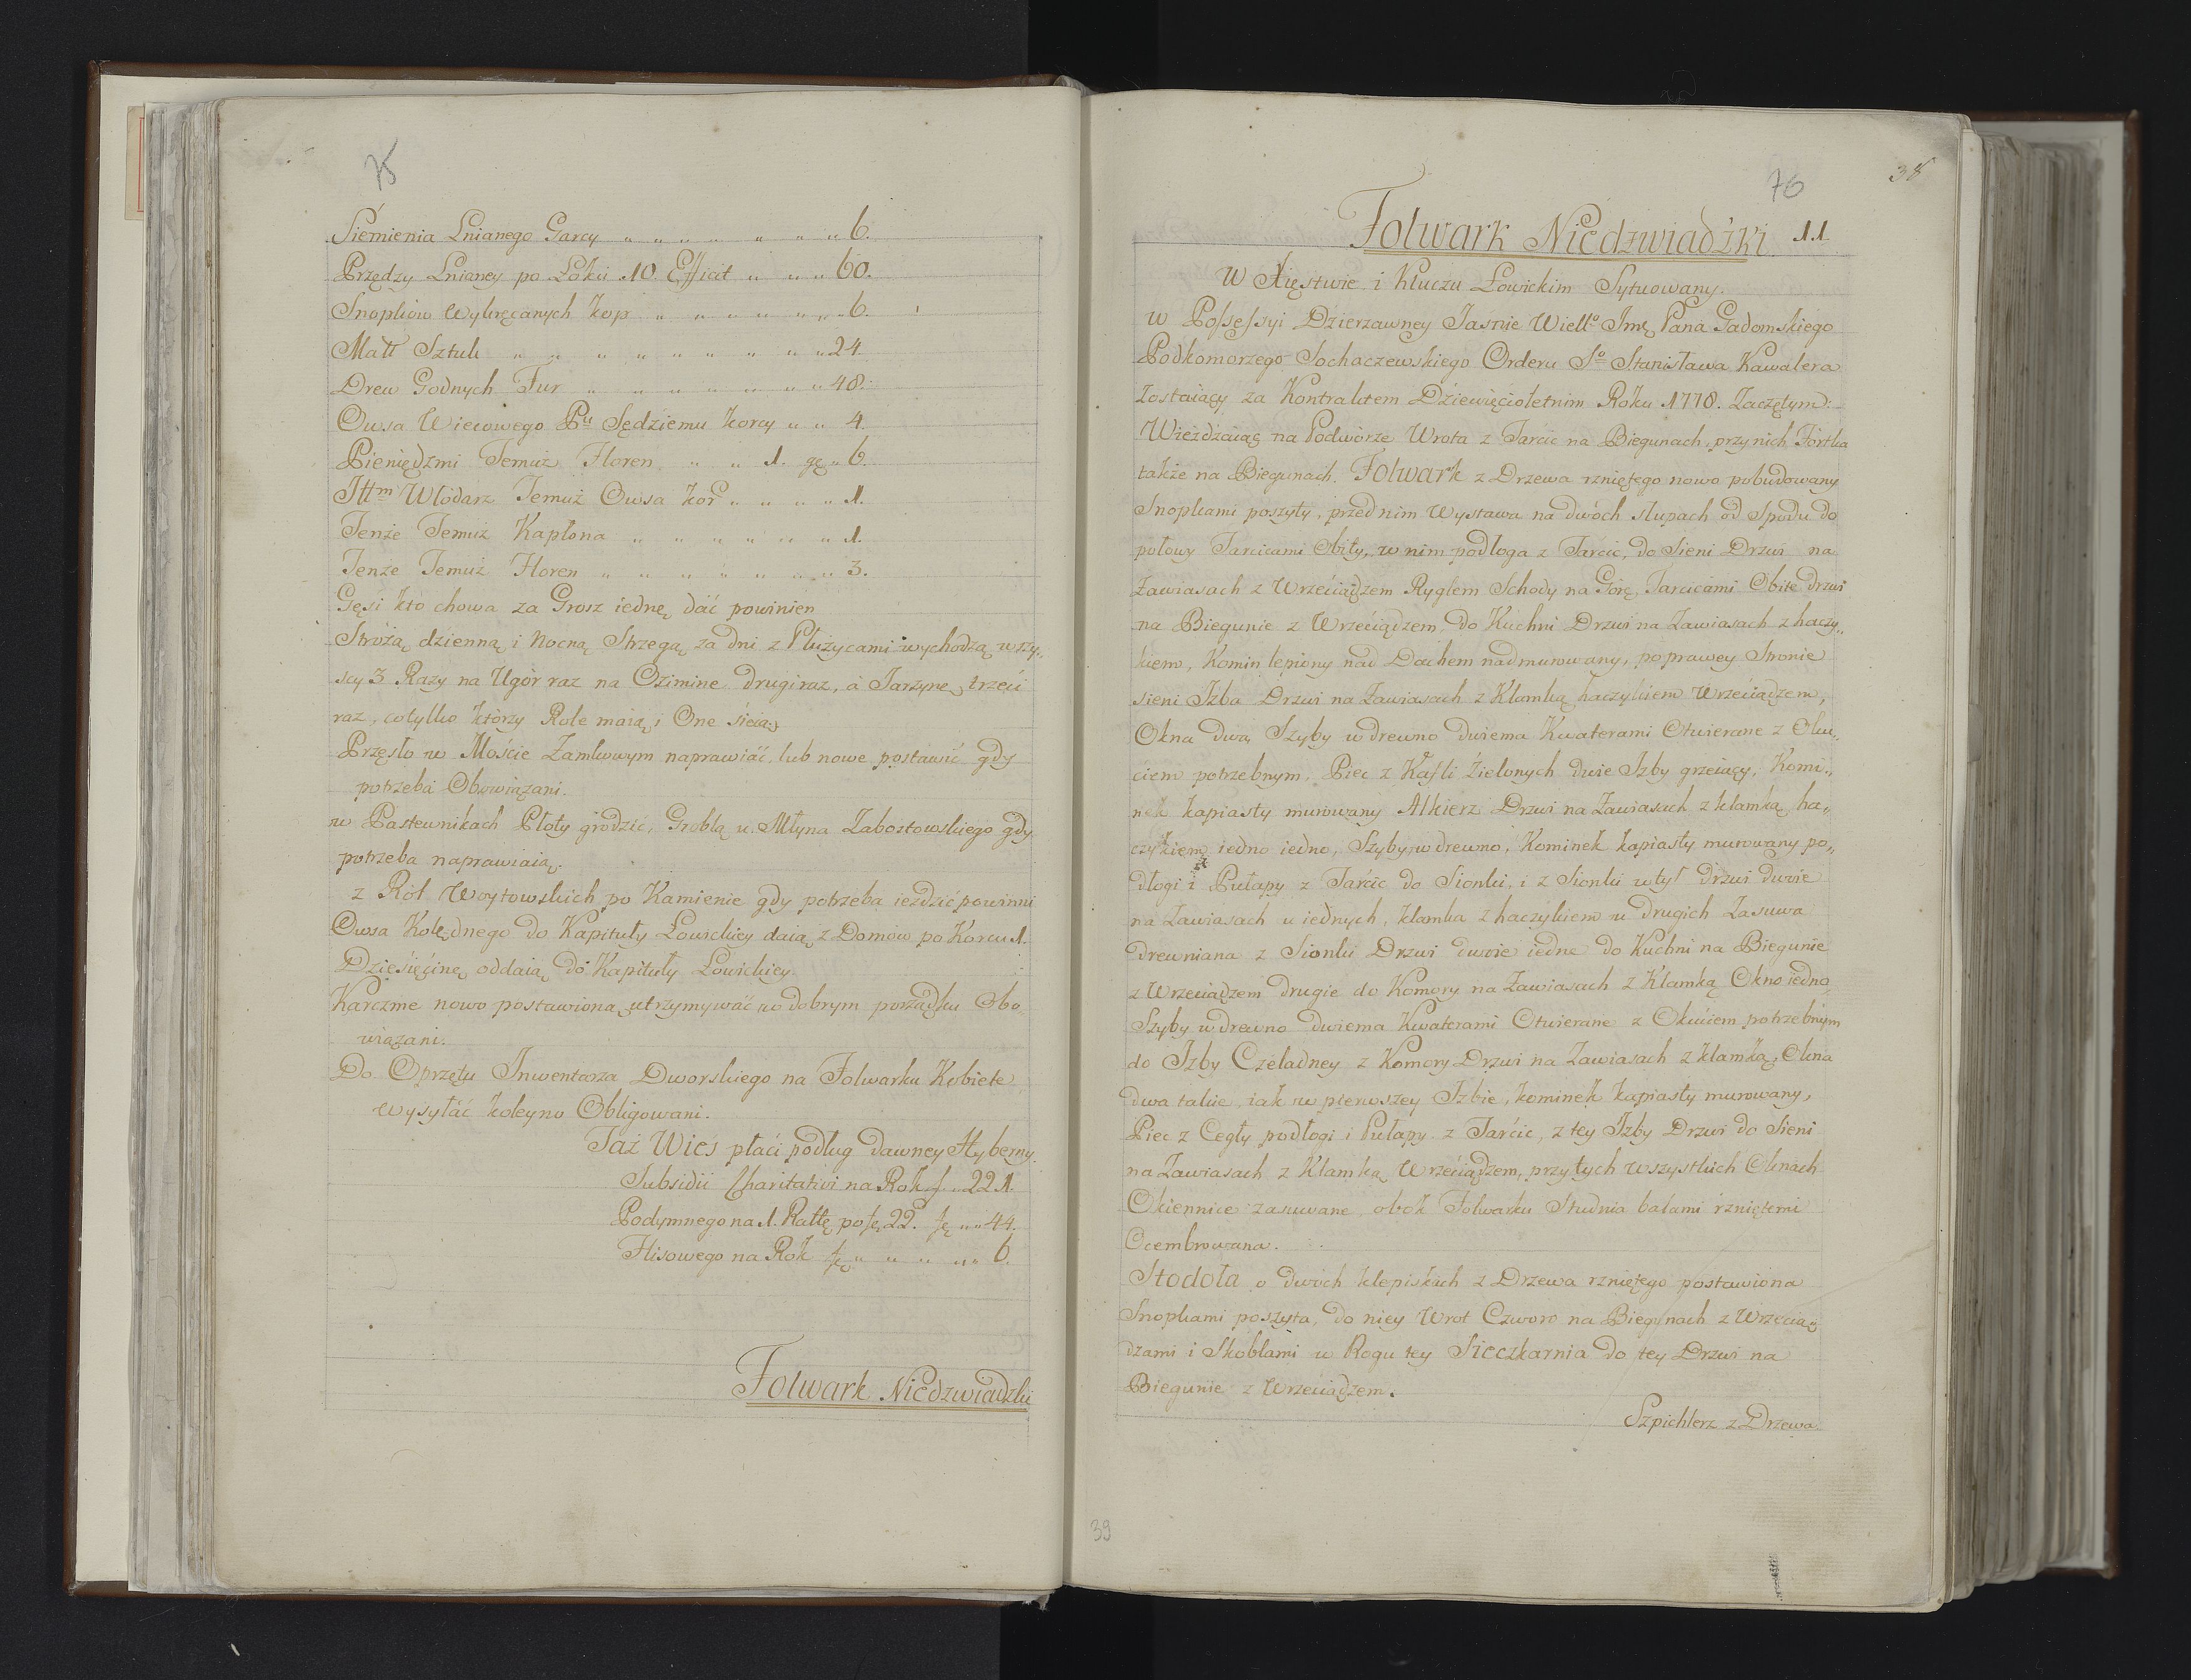 75
Siemienia Lnianego Garcy „ „ „ „ „ „ „ 6.
Przędzy Lnianey po Łokci 10 Efficit „ „ „ 60.
Snopków Wykręcanych kop „ „ „ „ „ „ „ 6.
Matt Sztuk „ „ „ „ „ „ „ „ 24.
Drew Godnych Fur „ „ „ „ „ „ „ 48.
Owsa Wiecowego Pu Sędziemu korcy „ „ 4.
Pieniędzmi Temuż Floren „ „ 1. gę „ 6.
Ittm Włodarz Temuż Owsa kor „ „ „ „ 1.
Tenże Temuż Kapłona „ „ „ „ „ „ 1.
Tenże Temuż Floren „ „ „ „ „ „ „ 3.
Gęsi kto chowa za Grosz iednę dać powinien
Strożą dzienną i Nocną Strzegą za dni z Płużycami wychodzą wszy„
scy 3 Razy na Ugor raz na Ozimine drugi raz, a Jarzyne trzeci
raz, co tylko ktorzy Role maią i One sieią
Przęsło w Moście Zamkowym naprawiać, lub nowe postawić gdy
potrzeba Obowiązani.
w Pastewnikach Płoty grodzić, Groblą u Młyna Zabostowskiego gdy
potrzeba naprawiaią.
z Rol Woytowskich po Kamienie gdy potrzeba ieździć powinni
Owsa Kolędnego do Kapituły Łowickiey daią z Domów po Korcu 1.
Dziesięcinę oddaią do Kapituły Łowickiey
Karczme nowo postawioną utrzymywać w dobrym porządku Obo
wiązani.
Do Oprzętu Inwentarza Dworskiego na Folwarku Kobiete
wysyłać koleyno Obligowani.
Taż Wieś płaci podług dawney Hyberny
Subsidii Charitativi na Rok f. 221.
Podymnego na 1. Rattę po fę 22. fę „ „ 44.
Flisowego na Rok fę „ „ „ „ „ 6.
Folwark Niedzwiadzki
76
38
Folwark Niedzwiadzki. 11
W Xięstwie i Kluczu Łowickim Sytuowany.
w Possessyi Dzierzawney Jasnie Wiello Imę Pana Gadomskiego
Podkomorzego Sochaczewskiego Orderu So Stanisława Kawalera
zostaiący za Kontraktem Dziewięcioletnim Roku 1778. Zaczętym:
Wieżdżaiąc na Podworze Wrota z Tarcic na Biegunach, przy nich Fortka
także na Biegunach. Folwark z Drzewa rzniętego nowo pobudowany
Snopkami poszyty, przed nim Wystawa na dwóch słupach od Spodu do
połowy Tarcicami Obity, w nim podłoga z Tarcic, do Sieni Drzwi na
zawiasach z Wrzeciądzem Ryglem Schody na Górę Tarcicami Obite drzwi
na Biegunie z Wrzeciądzem, do Kuchni Drzwi na Zawiasach z haczy„
kiem, Komin lepiony nad Dachem nadmurowany, po prawey Stronie
sieni Izba Drzwi na Zawiasach z Klamką haczykiem Wrzeciądzem,
Okna dwa Szyby w drewno dwiema Kwaterami Otwierane z Oku„
ciem potrzebnym. Piec z Kafli Zielonych dwie Izby grzeiący, Komi„
nek kapiasty murowany Alkierz Drzwi na Zawiasach z klamką ha„
czykiem iedno iedno, Szyby w drewno, Kominek kapiasty murowany po„
dłogi i Pułapy z Tarcic do Sionki, i z Sionki w tył drzwi dwoie
na Zawiasach u iednych, klamka z haczykiem u drugich Zasuwa
drewniana z Sionki Drzwi dwoie iedne do Kuchni na Biegunie
z Wrzeciądzem drugie do Komory na Zawiasach z Klamką Okno iedno
Szyby w drewno dwiema Kwaterami Otwierane z Okuciem potrzebnym
do Izby Czeladney z Komory Drzwi na Zawiasach z klamką, Okna
dwa takie iak w pierwszey Izbie, kominek kapiasty murowany,
Piec z Cegły podłogi i Pułapy z Tarcic, z tey Izby Drzwi do Sieni
na Zawiasach z Klamką Wrzeciądzem, przy tych wszystkich Oknach
Okiennice zasuwane obok Folwarku Studnia balami rzniętemi
Ocembrowana.
Stodoła o dwóch klepiskach z Drzewa rzniętego postawiona
Snopkami poszyta, do niey Wrot Czworo na Biegunach z Wrzecią„
dzami i Skoblami w Rogu tey Sieczkarnia do tey Drzwi na
Biegunie z Wrzeciądzem.
Szpichlerz z Drzewa
39